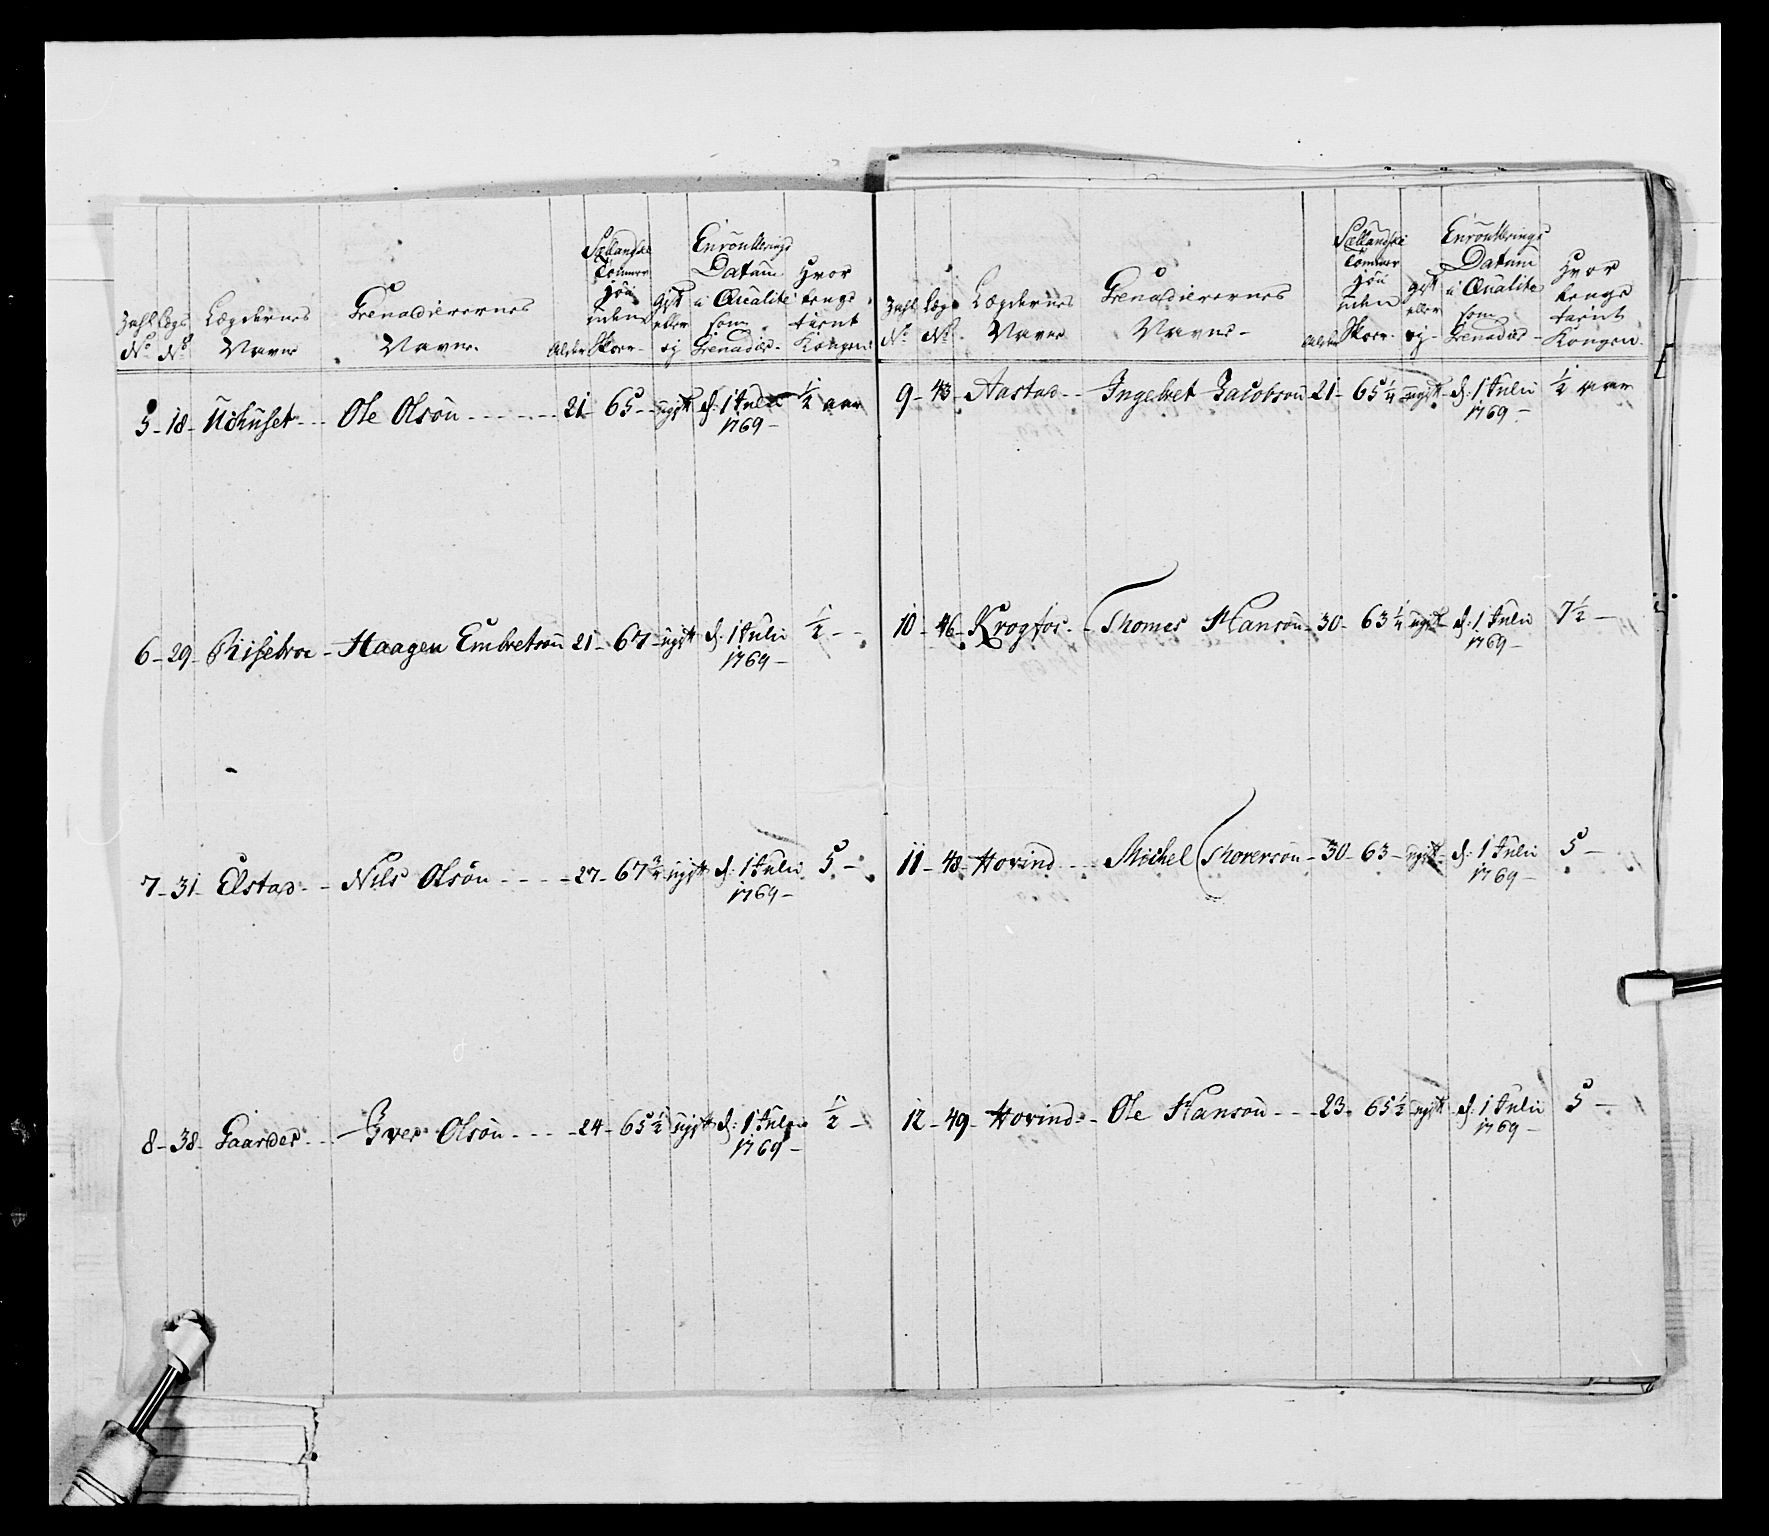 Zahl No
Lægs No
Lægdernes Navne
Grenadierernes Navne
Alder
Sællandske Tommer höi uden Skoer
Gift eller ej
Enroullerings Datum i Qualité som Grenader
Hvor længe tient Kongen
5 - 18 - Ole Olsön - 21 - 65 - ugift d: 1 Julii 1769 - ½ aar
6 - 29 - Risebroe - Haagen Embretsön 21 - 67 - ugift d: 1 Julii 1769 - ½ -
7 - 31 - Elstad - Nils Olsön - 27 - 67 ¾ ugift d: 1 Julii 1769 - 5 -
8 - 38 - Gaarder - Iver Olsön - 24 - 65 ½ ugift d: 1 Julii 1769 - ½ -
Zahl No
Læg No
Lægdernes Navne
Grenadierernes Navne
Alder
Sællandske Tommer höi uden Skoer
gift eller ej
Enroullerings Datum i Qualite som Grenader
Hvor længe tient Kongen
9 - 43 - Aastad - Ingebret Jacobsön 21 - 65 ¼ ugift d: 1 Julii 1769 - ½ aar
10 - 46 - Krogfos - Thomes Hansön - 30 - 63 ¼ ugift d: 1 Julii 1769 - 7½ -
11 - 48 - Hovind - Michel Thorersön - 30 - 63 - ugift - d: 1 Julii 1769 - 5 -
12 - 49 - Hovind - Ole Hansön - 23 - 65 ½ ugift d: 1 Julii 1769 - 5 -